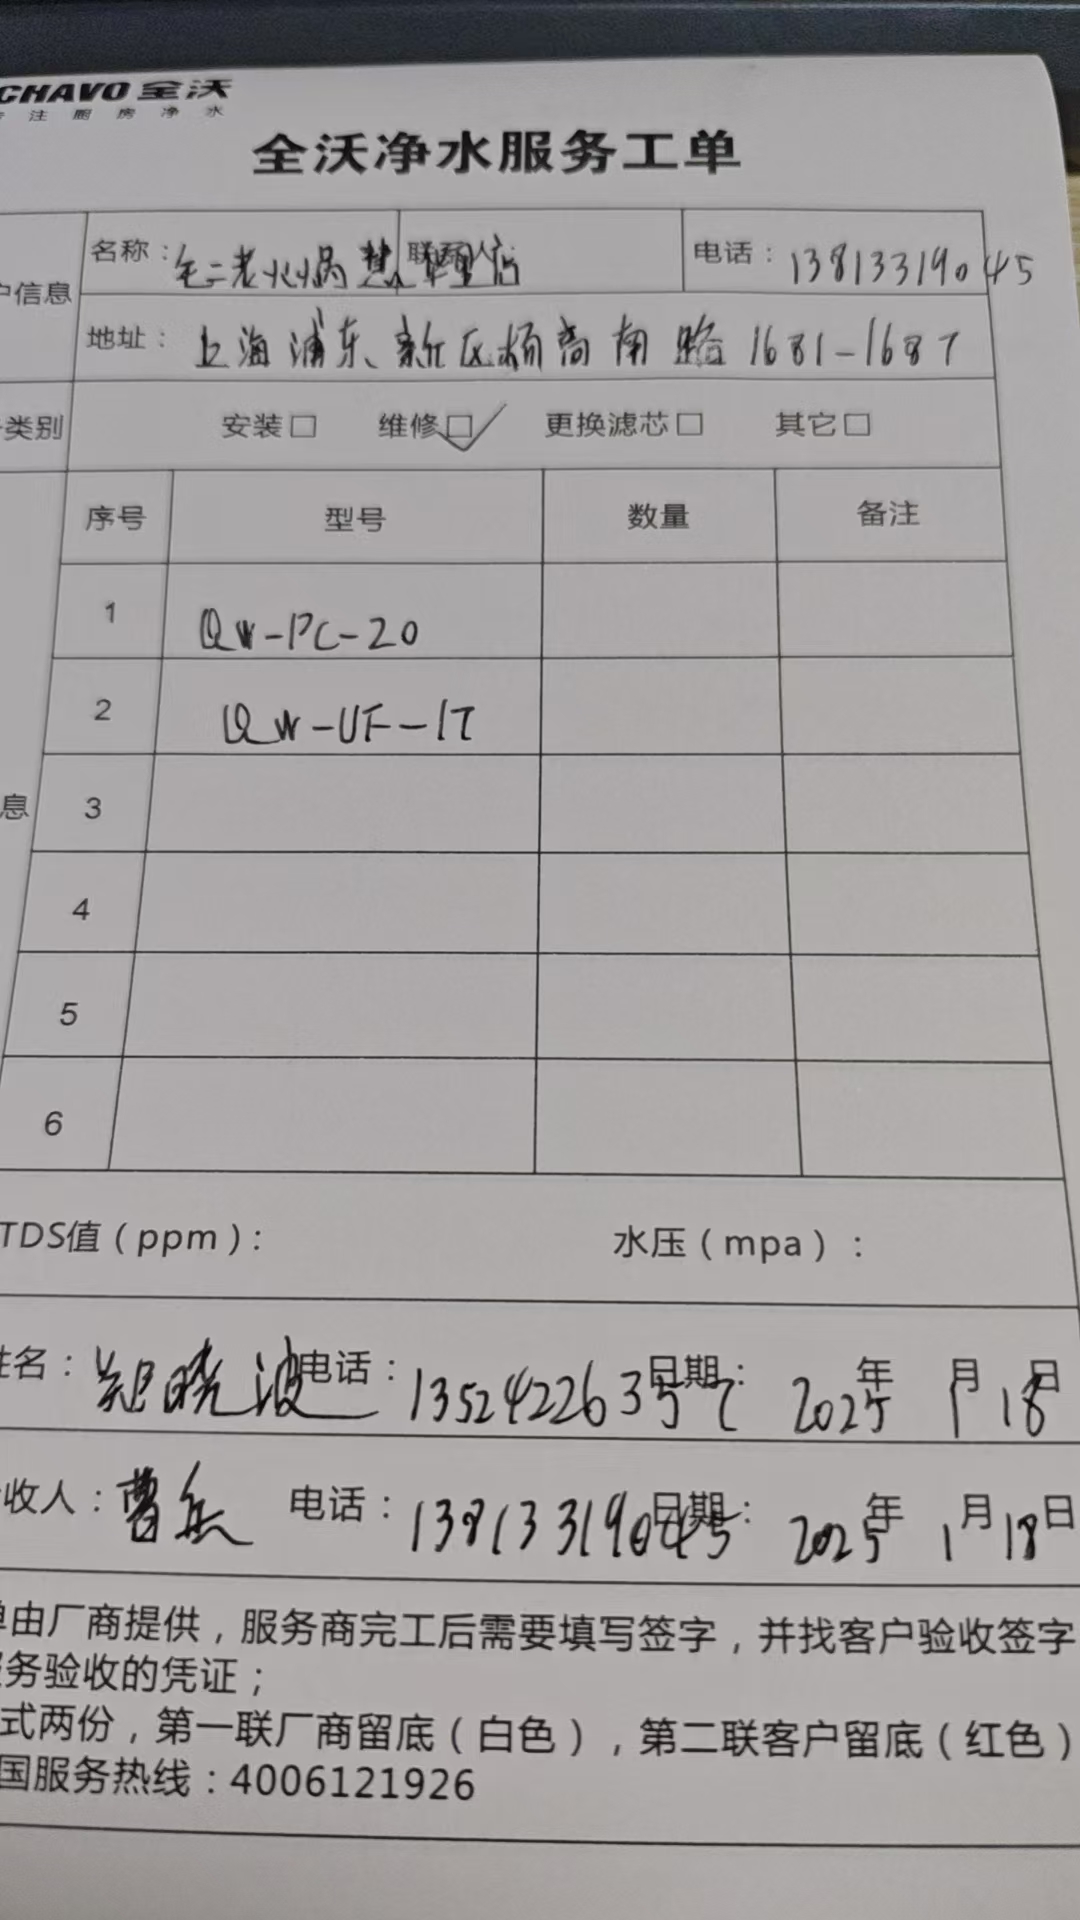 CHAVO 全沃
注 厨 房 净 水
全沃净水服务工单
户信息
名称：仝二老火锅 店
联系人
电话：13813319045
地址：上海浦东新区杨高南路1681-1687
类别
安装□ 维修□✓ 更换滤芯□ 其它□
序号 型号 数量 备注
1 QW-PC-20
2 QW-UF-1T
息
3
4
5
6
TDS值（ppm）： 水压（mpa）：
姓名：郑晓波 电话：13524226357 日期：2025年1月18日
收人：曹 电话：13813319045 日期：2025年1月18日
单由厂商提供，服务商完工后需要填写签字，并找客户验收签字
务验收的凭证；
式两份，第一联厂商留底（白色），第二联客户留底（红色）
国服务热线：4006121926